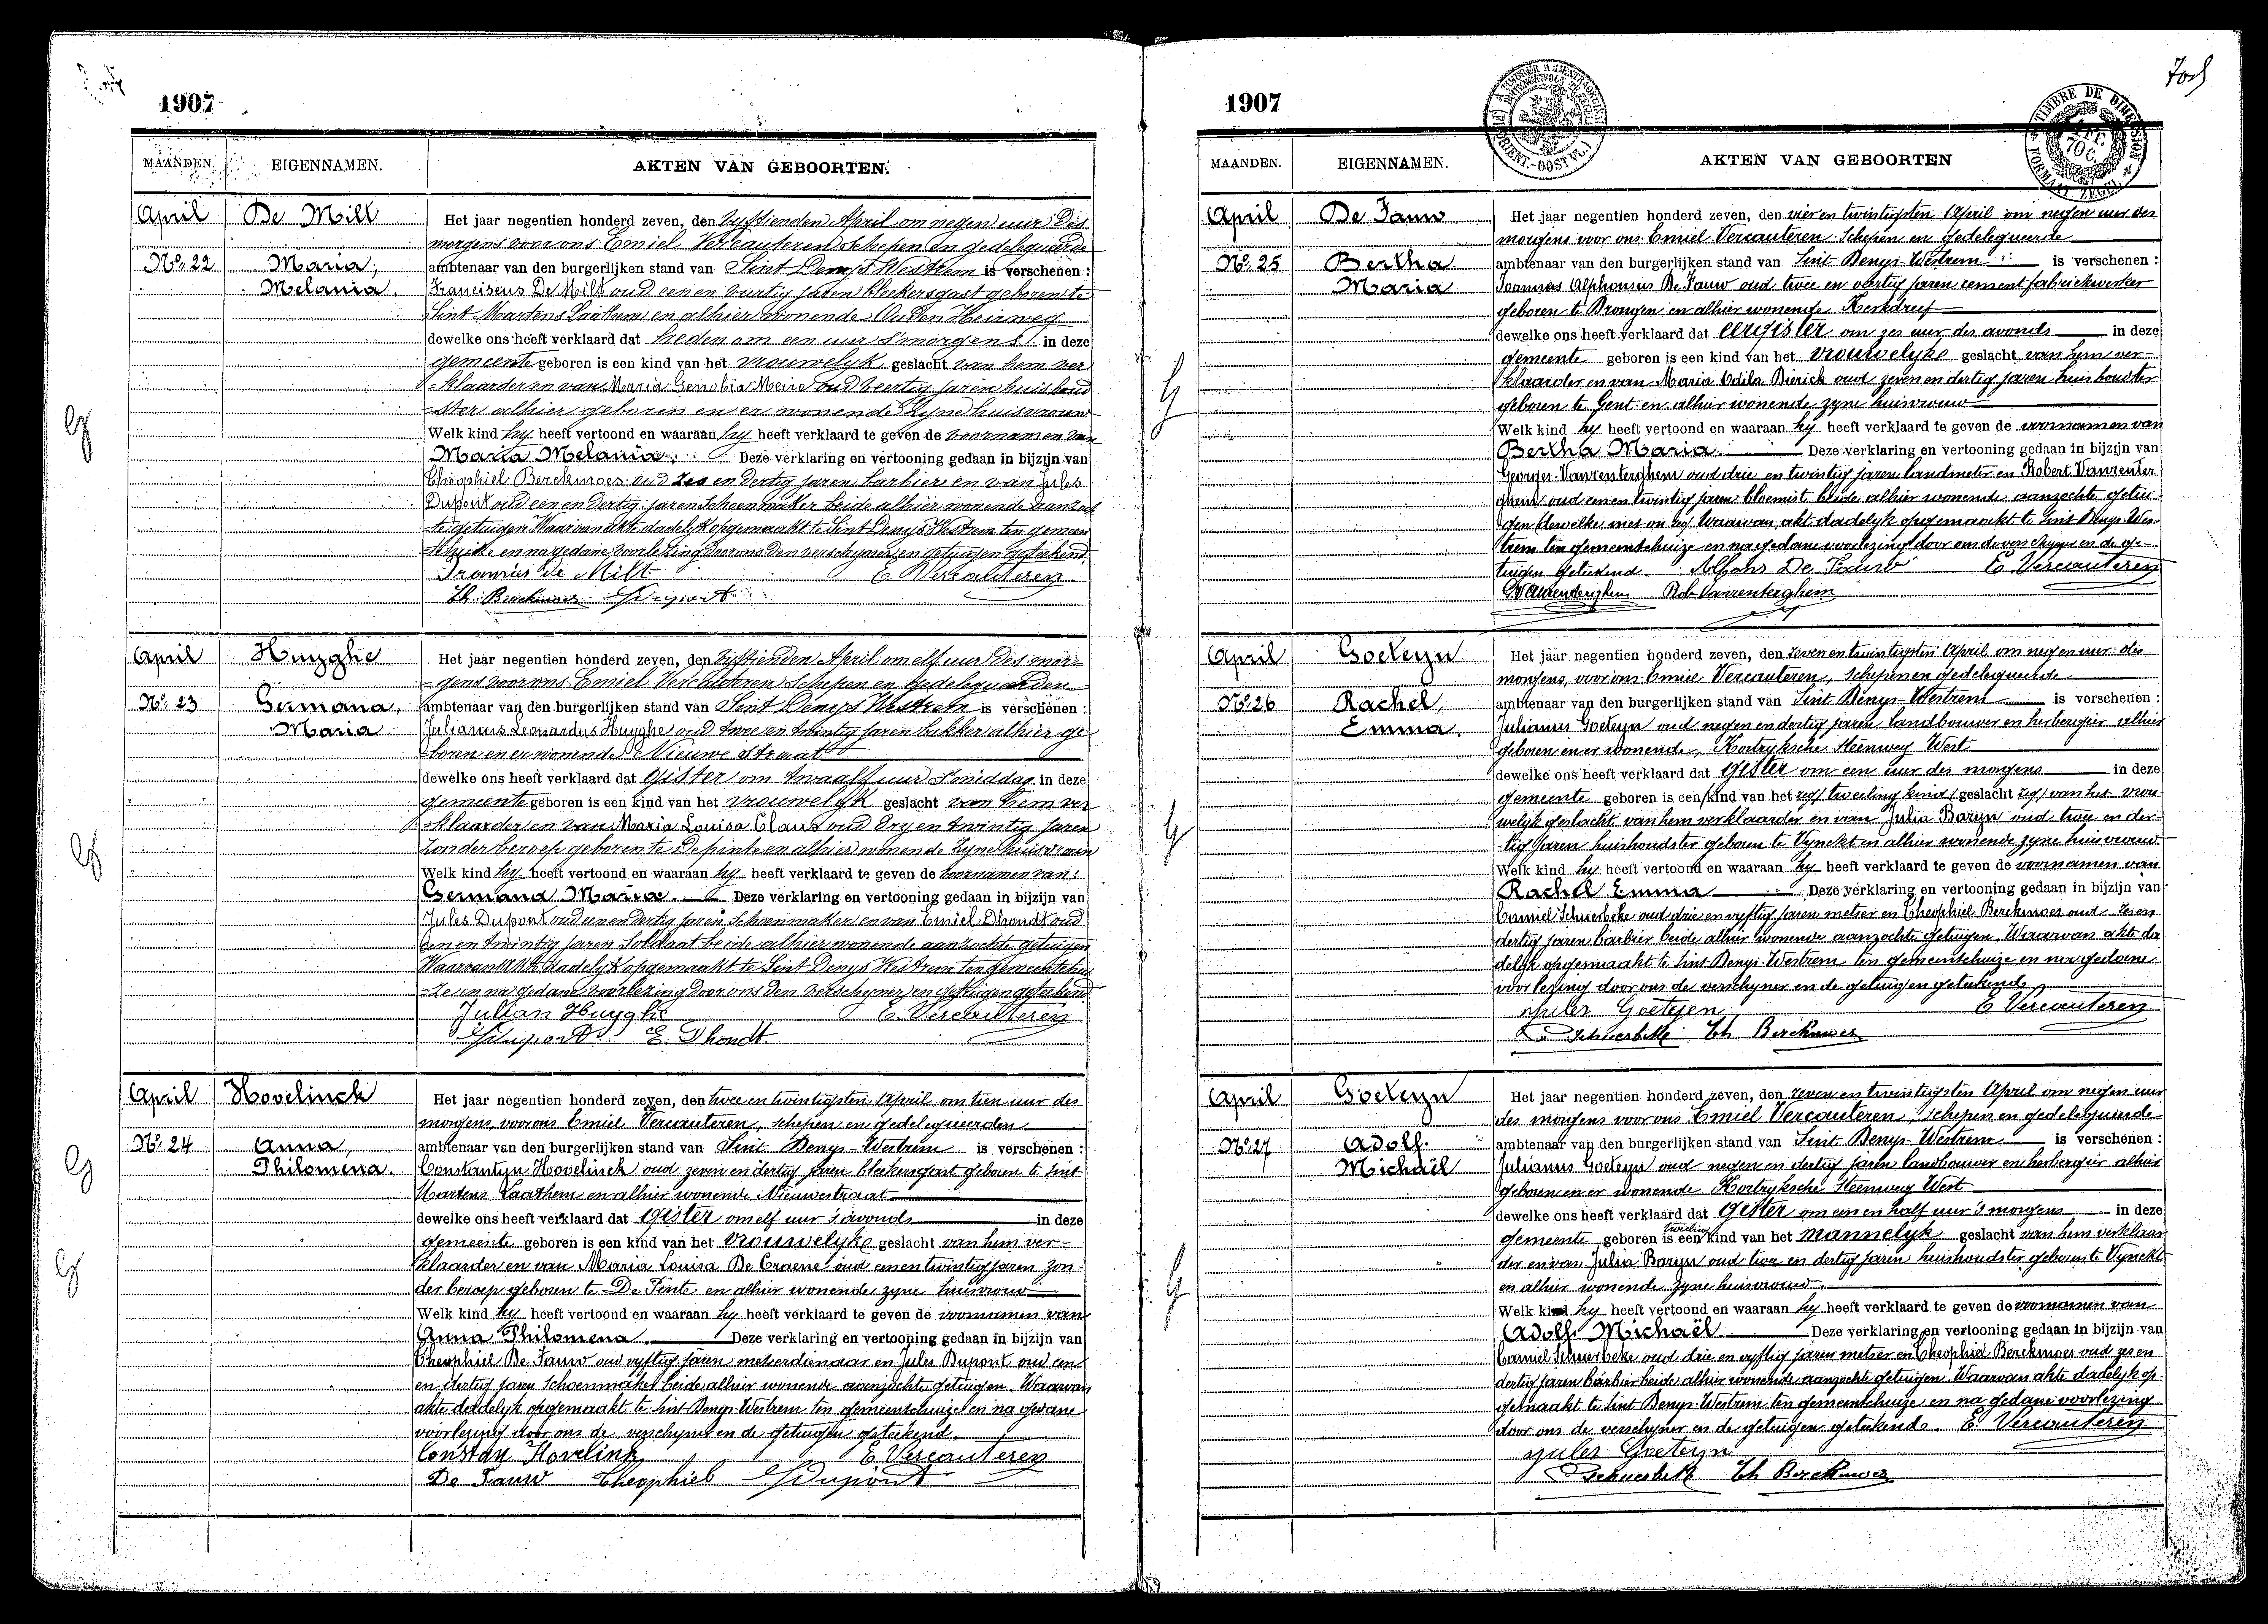 1907
MAANDEN. EIGENNAMEN. AKTEN VAN GEBOORTEN.
April De Milt Het jaar negentien honderd zeven, den vyftienden April om negen uur des
morgens voor ons Emiel Vercauteren Schepen en gedelegueerde
No. 22 Maria, ambtenaar van den burgerlijken stand van Sint Denys Westrem is verschenen :
Melania. Franciscus De Milt oud een en veertig jaren bleekersgast geboren te
Sint Martens Laathem en alhier wonende Ouden Heirweg
dewelke ons heeft verklaard dat heden om een uur s'morgens in deze
gemeente geboren is een kind van het vrouwelyk geslacht van hem ver
-klaarder en van Maria Genobia oud veertig jaren huishoud
-ster alhier geboren en er wonende zyne huisvrouw
Welk kind hy heeft vertoond en waaraan hy heeft verklaard te geven de voornamen van
Maria Melania. Deze verklaring en vertooning gedaan in bijzijn van
Theophiel Berckmoes oud zes en dertig jaren barbier en van Jules
Dupont oud een en dertig jaren schoenmaker beide alhier wonende aanzoch
-te getuigen Waarvan akte dadelyk opgemaakt te Sint Denys Westrem ten gemeen
-tehuize en na gedane voorlezing door ons den verschyner en getuigen geteekend.
De Milt E Vercauteren
Th. Berckmoes JDupont
April Huyghe Het jaar negentien honderd zeven, den vyftienden April om elf uur des mor-
-gens voor ons Emiel Vercauteren Schepen en gedelegueerden
No. 23 Germana, ambtenaar van den burgerlijken stand van Sint Denys Westrem is verschenen :
Maria. Julianus Leonardus Huyghe oud twee en twintig jaren bakker alhier ge
-boren en er wonende Nieuwe straat
dewelke ons heeft verklaard dat gister om twaalf uur s'middag in deze
gemeente geboren is een kind van het vrouwelyk geslacht van hem ver
-klaarder en van Maria Louisa Claus oud dry en twintig jaren
zonder beroep geboren te Depinte en alhier wonende zyne huisvrouw
Welk kind hy heeft vertoond en waaraan hy heeft verklaard te geven de voornamen van :
Germana Maria. Deze verklaring en vertooning gedaan in bijzijn van
Jules Dupont oud een en dertig jaren schoenmaker en van Emiel Dhondt oud
een en twintig jaren Soldaat beide alhier wonende aanzochte getuigen
Waarvan akte dadelyk opgemaakt te Sint Denys Westrem ten gemeentehui
-ze en na gedane voorlezing door ons den verschyner en getuigen geteekend
Julian Huyghe E. Vercauteren
JDupont E. Dhondt
April Hovelinck Het jaar negentien honderd zeven, den twee en twintigsten April om tien uur des
morgens voor ons Emiel Vercauteren, schepen en gedelegueerden
No. 24 Anna, ambtenaar van den burgerlijken stand van Sint Denys-Westrem is verschenen :
Philomena Constantyn Hovelinck oud zeven en dertig jaren bleekersgast geboren te Sint
Martens Laathem en alhier wonende Nieuwestraat
dewelke ons heeft verklaard dat gister om elf uur s'avonds in deze
gemeente geboren is een kind van het vrouwelyke geslacht van hem ver-
klaarder en van Maria Louisa De Craene oud een en twintig jaren zon-
der beroep geboren te De Pinte en alhier wonende zyne huisvrouw
Welk kind hy heeft vertoond en waaraan hy heeft verklaard te geven de voornamen van
Anna Philomena. Deze verklaring en vertooning gedaan in bijzijn van
Theophiel De Fauw oud vyftig jaren metserdienaar en Jules Dupont oud een
en dertig jaren schoenmaker beide alhier wonende aanzochte getuigen. Waarvan
akte dadelyk opgemaakt te Sint Denys-Westrem ten gemeentehuize en na gedane
voorlezing door ons de verschyner en de getuigen geteekend.
Constan Hovelink E Vercauteren
De Fauw Theophiel JDupont
1907
TIMBRE DE DIMENSION
FORMAAT ZEGEL
MAANDEN. EIGENNAMEN. AKTEN VAN GEBOORTEN
April De Fauw Het jaar negentien honderd zeven, den vier en twintigsten April om negen uur des
morgens voor ons Emiel Vercauteren Schepen en gedelegueerde
No. 25 Bertha ambtenaar van den burgerlijken stand van Sint-Denys-Westrem is verschenen :
Maria Joannes Alphonsus De Fauw oud twee en veertig jaren cementfabriekwerker
geboren te Drongen en alhier wonende Kerkdreef
dewelke ons heeft verklaard dat eergister om zes uur des avonds in deze
gemeente geboren is een kind van het vrouwelyke geslacht van hem ver-
klaarder en van Maria Odila Dierick oud zeven en dertig jaren huishoudster
geboren te Gent en alhier wonende zyne huisvrouw
Welk kind hy heeft vertoond en waaraan hy heeft verklaard te geven de voornamen van
Bertha Maria. Deze verklaring en vertooning gedaan in bijzijn van
Georges Vanrenterghem oud drie en twintig jaren landmeter en Robert Vanrenter
ghem oud een en twintig jaren bloemist beide alhier wonende aanzochte getui-
gen dewelke Waarvan akt dadelyk opgemaakt te Sint Denys-Wes-
trem ten gemeentehuize en na gedane voorlezing door ons de verschyner en de ge-
tuigen geteekend. Alfons De Fauw E. Vercauteren
GVanrenterghem Rob Vanrenterghem
April Goeteyn Het jaar negentien honderd zeven, den zeven en twintigsten April om negen uur des
morgens, voor ons Emiel Vercauteren, schepen en gedelegueerde
No. 26 Rachel, ambtenaar van den burgerlijken stand van Sint Denys-Westrem is verschenen :
Emma, Julianus Goeteyn oud negen en dertig jaren landbouwer en herbergier alhier
geboren en er wonende, Kortryksche Steenweg West
dewelke ons heeft verklaard dat gister om een uur des morgens in deze
gemeente geboren is een kind van het zeg/ tweeling kind/ geslacht zeg/ van het vrou-
welyk geslacht van hem verklaarder en van Julia Baryn oud twee en der-
tig jaren huishoudster geboren te Vynckt en alhier wonende zyne huisvrouw
Welk kind hy heeft vertoond en waaraan hy heeft verklaard te geven de voornamen van
Rachel Emma Deze verklaring en vertooning gedaan in bijzijn van
Camiel Schuerbeke oud drie en vyftig jaren metser en Theophiel Berckmoes oud zes en
dertig jaren barbier beide alhier wonende aanzochte getuigen. Waarvan akte da-
delyk opgemaakt te Sint Denys-Westrem ten gemeentehuize en na gedane
voorlezing door ons de verschyner en de getuigen geteekend.
Jules Goeteyn E Vercauteren
Schuerbeke Th Berckmoes
April Goeteyn Het jaar negentien honderd zeven, den zeven en twintigsten April om negen uur
des morgens voor ons Emiel Vercauteren, schepen en gedelegueerde
No. 27 Adolf. ambtenaar van den burgerlijken stand van Sint Denys-Westrem is verschenen :
Michaël Julianus Goeteyn oud negen en dertig jaren landbouwer en herbergier alhier
geboren en er wonende Kortryksche Steenweg West
dewelke ons heeft verklaard dat gister om een en half uur 's morgens in deze
gemeente geboren is een tweeling kind van het mannelyk geslacht van hem verklaar
der en van Julia Baryn oud twee en dertig jaren huishoudster geboren te Vynckt
en alhier wonende zyne huisvrouw.
Welk kind hy heeft vertoond en waaraan hy heeft verklaard te geven de voornamen van
Adolf Michaël Deze verklaring en vertooning gedaan in bijzijn van
Camiel Schuerbeke oud drie en vyftig jaren metser en Theophiel Berckmoes oud zes en
dertig jaren barbier beide alhier wonende aanzochte getuigen. Waarvan akte dadelyk op-
gemaakt te Sint Denys-Westrem ten gemeentehuize en na gedane voorlezing
door ons de verschyner en de getuigen geteekend. E. Vercauteren
Jules Goeteyn
Schuerbeke Th Berckmoes